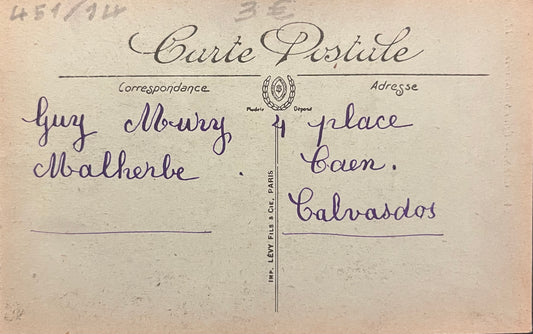 451/14 3€
Carte Postale
Correspondance Adresse
Modèle Déposé
Guy Mury 4 place
Malherbe . Caen.
Calvasdos
IMP. LÉVY FILS & CIE, PARIS